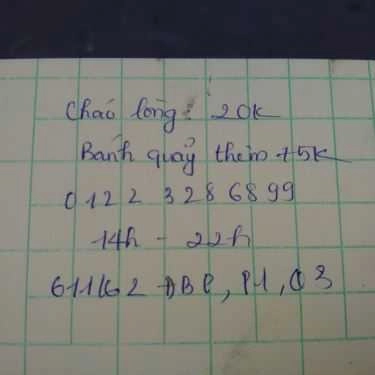 Cháo lòng: 20K
Bánh quẩy thêm +5K
0122 3286899
14h - 22h
611/62 ĐBP, P1, Q3